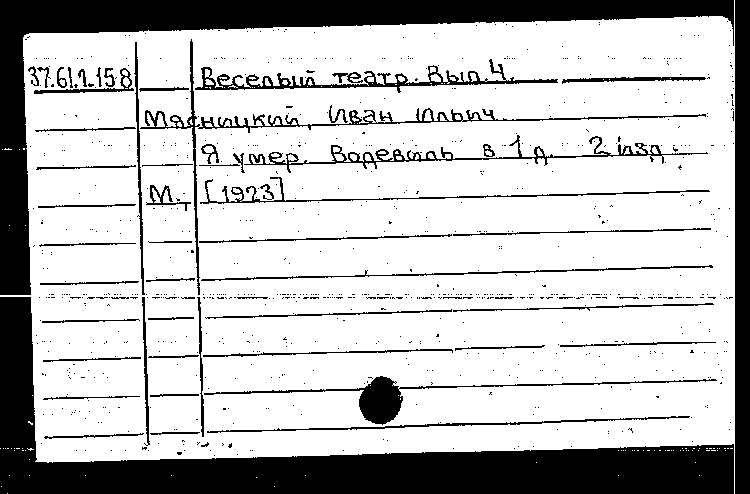 37.61.1.158 Веселый театр. Вып. 4.
Мясницкий, Иван Ильич
Я умер. Водевиль в 1 д. 2 изд.
М., [1923]